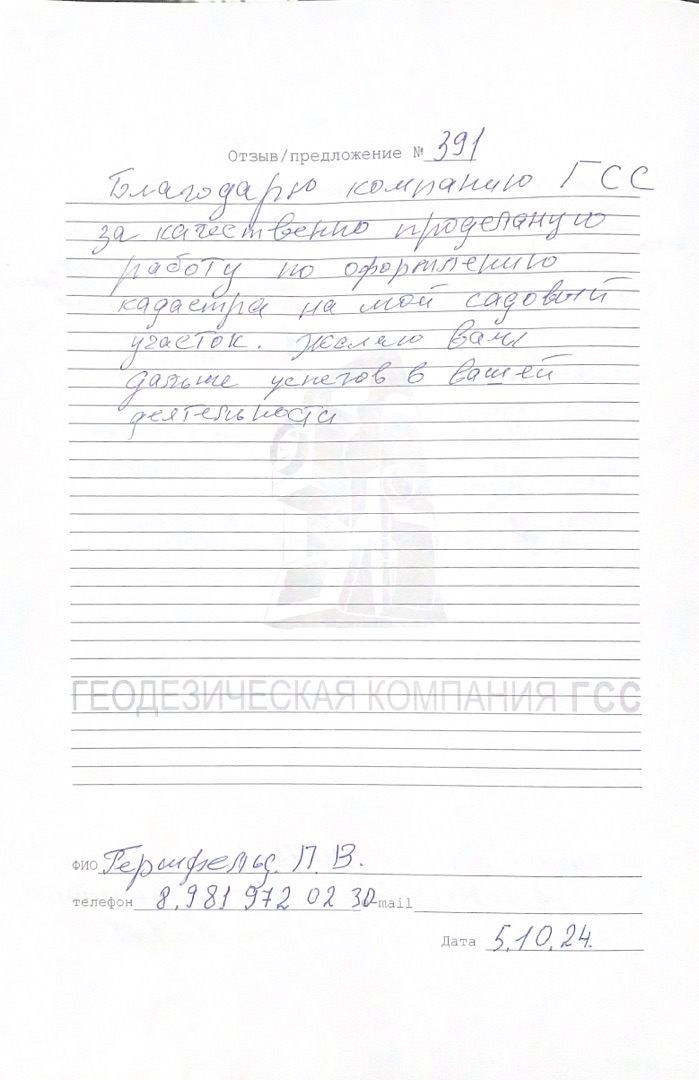 Отзыв/предложение № 391
Благодарю компанию ГСС
за качественно проделаную
работу по оформлению
кадастра на мой садовый
участок. Желаю Вам
дальше успехов в вашей
деятельности
ГЕОДЕЗИЧЕСКАЯ КОМПАНИЯ ГСС
ФИО Гершфельд. П. В.
телефон 8.981 972 02 30 e-mail
Дата 5.10.24.